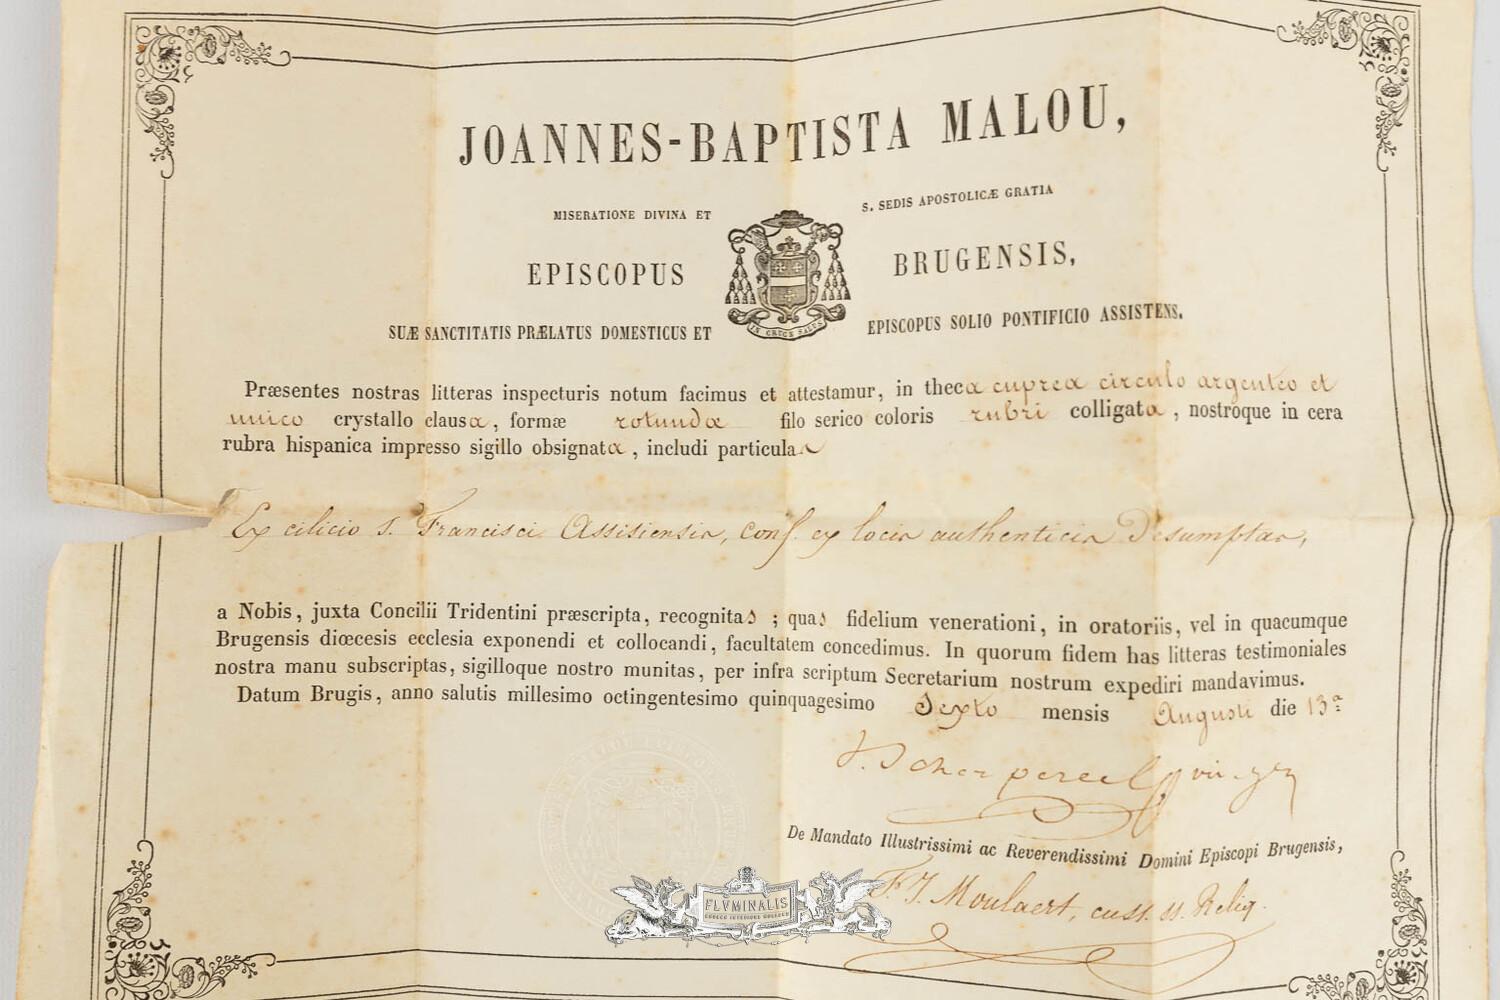 JOANNES-BAPTISTA MALOU,
MISERATIONE DIVINA ET S. SEDIS APOSTOLICÆ GRATIA
EPISCOPUS BRUGENSIS,
SUÆ SANCTITATIS PRÆLATUS DOMESTICUS ET EPISCOPUS SOLIO PONTIFICIO ASSISTENS.
IN CRUCE SALUS
Præsentes nostras litteras inspecturis notum facimus et attestamur, in theca cuprea circulo argenteo et
unico crystallo clausa, formæ rotundæ filo serico coloris rubri colligata, nostroque in cera
rubra hispanica impresso sigillo obsignata, includi particulas
Ex cilicio S. Francisci Assisiensis, conf. ex locis authenticis Desumptas,
a Nobis, juxta Concilii Tridentini præscripta, recognitas; quas fidelium venerationi, in oratoriis, vel in quacumque
Brugensis diœcesis ecclesia exponendi et collocandi, facultatem concedimus. In quorum fidem has litteras testimoniales
nostra manu subscriptas, sigilloque nostro munitas, per infra scriptum Secretarium nostrum expediri mandavimus.
Datum Brugis, anno salutis millesimo octingentesimo quinquagesimo Sexto mensis Augusti die 13ª
Scherpereel vic. gen
De Mandato Illustrissimi ac Reverendissimi Domini Episcopi Brugensis,
F. J. Moulaert, cust. ss. Reliq.
FLVMINALIS